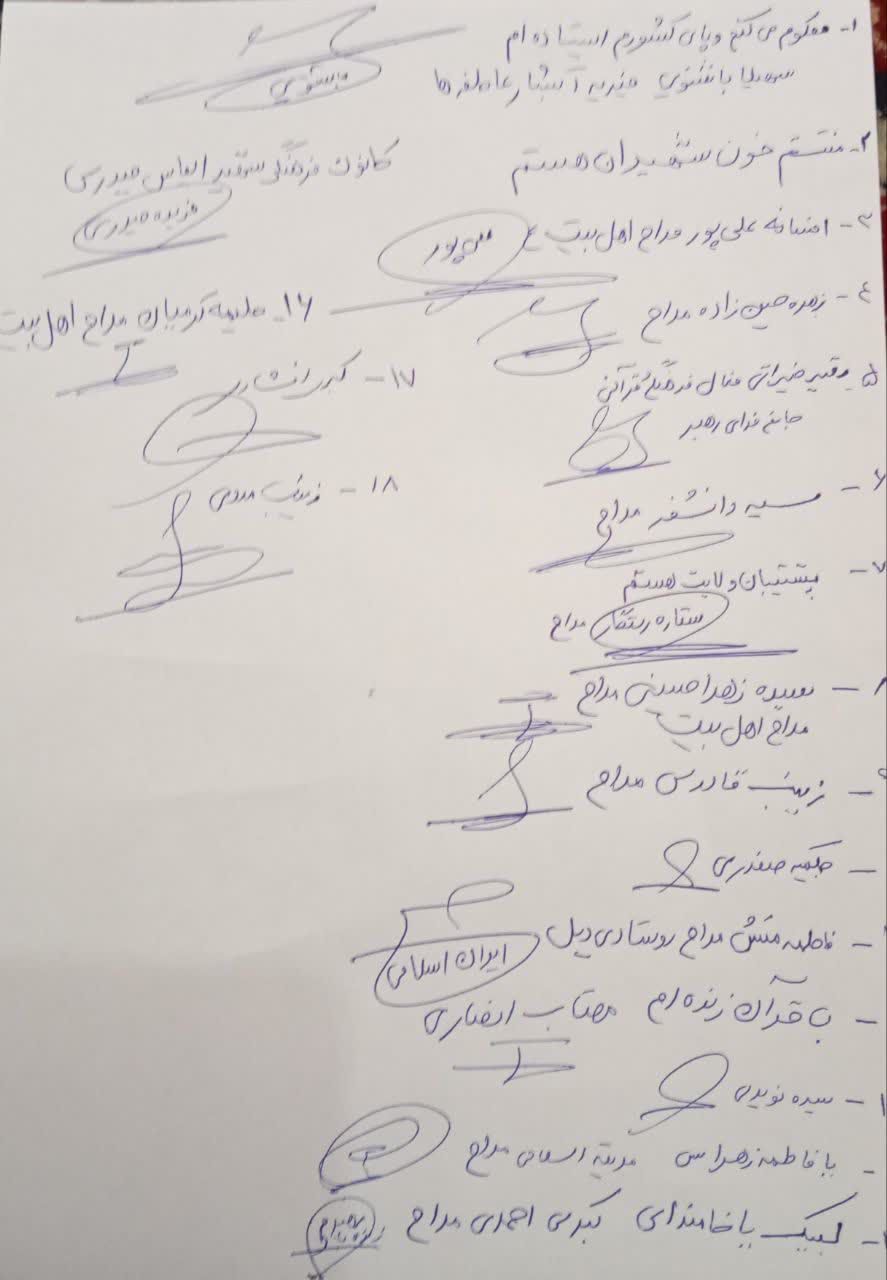 ۱- محکوم می کنم و پای کشورم ایستاده ام
سهیلا باشتنی مدیریه آبشار عاطفه ها
۲- منتقم خون شهیدان هستم
کانون فرهنگی شهید الیاس حیدری
فریده حیدری
۳- افسانه علی پور مداح اهل بیت ع
علی پور
۴- زهره حسین زاده مداح
۵- خیراتی فعال فرهنگی قرآنی
جانم فدای رهبر
۶- سمیه دانشفر مداح
۷- پشتیبان ولایت هستم
ستاره رستگار مداح
۸- سیده زهرا حسینی مداح
مداح اهل بیت
۹- زینب قادری مداح
- حکیمه صفدری
- فاطمه منش مداح روستای دیل
ایران اسلامی
- با قرآن زنده ام مهتاب انصاری
۱- سیده نویدی
- یا فاطمه زهرا س مداح
۱- لبیک یا خامنه ای کبری احمدی مداح
۱۶- حلیمه کرمیان مداح اهل بیت
۱۷- کبری افشار
۱۸- زینب